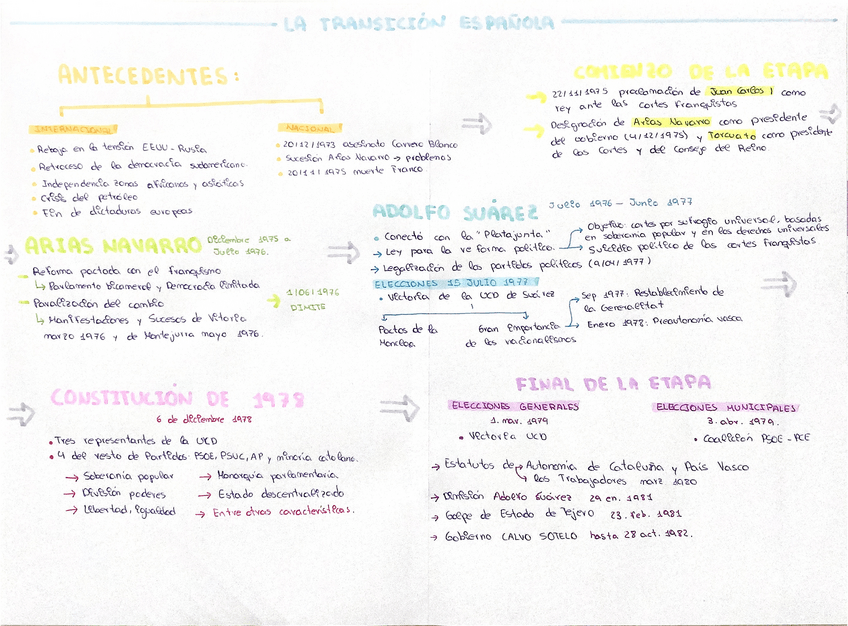 LA TRANSICIÓN ESPAÑOLA
ANTECEDENTES:
INTERNACIONAL
• Rebaja en la tensión EEUU - Rusia
• Retroceso de la democracia sudamericana.
• Independencia zonas africanas y asiáticas
• Crisis del petróleo
• Fin de dictaduras europeas
NACIONAL
• 20/12/1973 asesinato Carrero Blanco
• Sucesión Arias Navarro → problemas
• 20/11/1975 muerte Franco.
COMIENZO DE LA ETAPA
→ 22/11/1975 proclamación de Juan Carlos I como
rey ante las cortes franquistas
→ Designación de Arias Navarro como presidente
del gobierno (4/12/1975) y Torcuato como president
de las Cortes y del Consejo del Reino.
ARIAS NAVARRO Diciembre 1975 a
Julio 1976.
→ Reforma pactada con el franquismo
↳ Parlamento bicameral y Democracia limitada
→ Paralización del cambio
↳ Manifestaciones y Sucesos de Vitoria
marzo 1976 y de Montejurra mayo 1976.
→ 1/06/1976
DIMITE
ADOLFO SUÁREZ Julio 1976 - Junio 1977
• Conectó con la "Platajunta"
→ Ley para la reforma política.
→ Objetivo: cortes por sufragio universal, basadas
en soberanía popular y en los derechos universales
→ Suicidio político de las cortes franquistas
→ Legalización de los partidos políticos (9/04/1977)
ELECCIONES 15 JULIO 1977
• Victoria de la UCD de Suárez
Pactos de la
Moncloa.
Gran importancia
de los nacionalismos
→ Sep 1977: Restablecimiento de
la Generalitat
→ Enero 1978: Preautonomía vasca
CONSTITUCIÓN DE 1978
6 de diciembre 1978
• Tres representantes de la UCD
• 4 del resto de Partidos: PSOE, PSUC, AP y minoría catalana.
→ Soberanía popular
→ División poderes
→ Libertad, igualdad
→ Monarquía parlamentaria.
→ Estado descentralizado
→ Entre otras características.
FINAL DE LA ETAPA
ELECCIONES GENERALES
1. mar. 1979
• Victoria UCD
ELECCIONES MUNICIPALES
3. abr. 1979.
• Coalición PSOE - PCE
→ Estatutos de → Autonomía de Cataluña y País Vasco
↳ los Trabajadores marz 1980
→ Dimisión Adolfo Suárez 29 en. 1981
→ Golpe de Estado de Tejero 23. feb. 1981
→ Gobierno CALVO SOTELO hasta 28 oct. 1982.